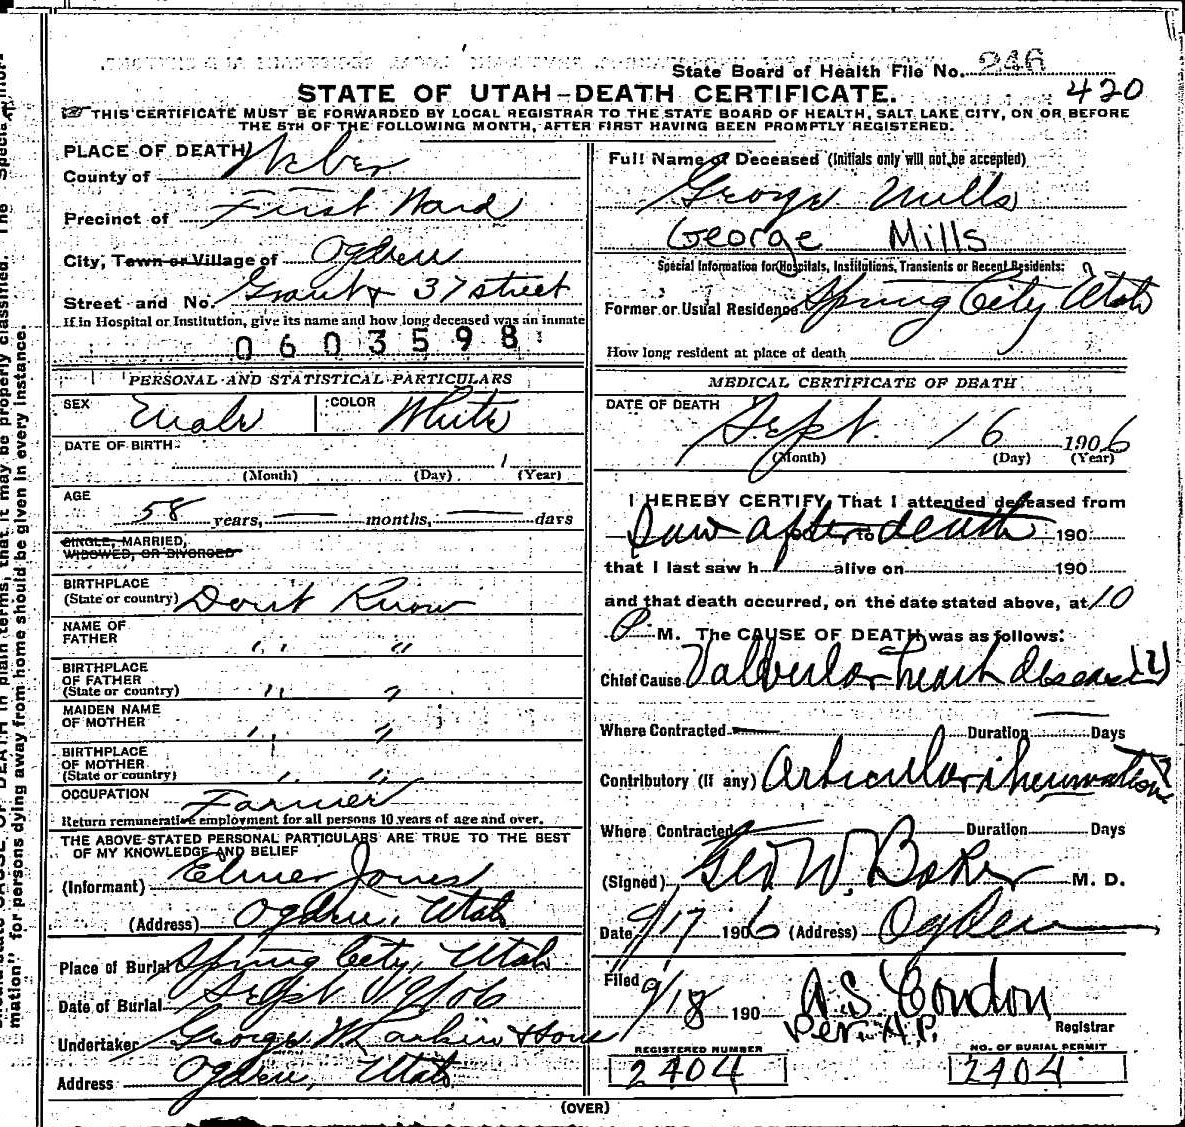 State Board of Health File No. 246
420
STATE OF UTAH-DEATH CERTIFICATE.
THIS CERTIFICATE MUST BE FORWARDED BY LOCAL REGISTRAR TO THE STATE BOARD OF HEALTH, SALT LAKE CITY, ON OR BEFORE
THE 5TH OF THE FOLLOWING MONTH, AFTER FIRST HAVING BEEN PROMPTLY REGISTERED.
PLACE OF DEATH
County of Weber
Precinct of First Ward
City, Town or Village of Ogden
Street and No. Grant & 37 street
If in Hospital or Institution, give its name and how long deceased was an inmate
0603598
PERSONAL AND STATISTICAL PARTICULARS
SEX Male COLOR White
DATE OF BIRTH
(Month) (Day) (Year)
AGE
58 years, — months, — days
SINGLE, MARRIED,
WIDOWED, OR DIVORCED
BIRTHPLACE
(State or country) Dont Know
NAME OF
FATHER " "
BIRTHPLACE
OF FATHER
(State or country) " "
MAIDEN NAME
OF MOTHER " "
BIRTHPLACE
OF MOTHER
(State or country) " "
OCCUPATION Farmer
Return remunerative employment for all persons 10 years of age and over.
THE ABOVE-STATED PERSONAL PARTICULARS ARE TRUE TO THE BEST
OF MY KNOWLEDGE AND BELIEF
(Informant) Elmer Jones
(Address) Ogden, Utah
Place of Burial Spring City, Utah
Date of Burial Sept 1906
Undertaker George W Larkin & Sons
Address Ogden, Utah
Full Name of Deceased (Initials only will not be accepted)
George Mills
George Mills
Special Information for Hospitals, Institutions, Transients or Recent Residents:
Former or Usual Residence Spring City Utah
How long resident at place of death
MEDICAL CERTIFICATE OF DEATH
DATE OF DEATH
Sept. 16 1906
(Month) (Day) (Year)
I HEREBY CERTIFY, That I attended deceased from
Saw after death to 190
that I last saw h alive on 190
and that death occurred, on the date stated above, at 10
P M. The CAUSE OF DEATH was as follows:
Chief Cause Valvular heart disease (?)
Where Contracted — Duration — Days
Contributory (if any) Articular rheumatism ?
Where Contracted Duration Days
(Signed) Geo. W. Baker M. D.
Date 9/17 1906 (Address) Ogden
Filed 9/18 190 A.S. Condon
Per. A.P. Registrar
REGISTERED NUMBER
2404
NO. OF BURIAL PERMIT
2404
(OVER)
mation" for persons dying away from home should be given in every instance.